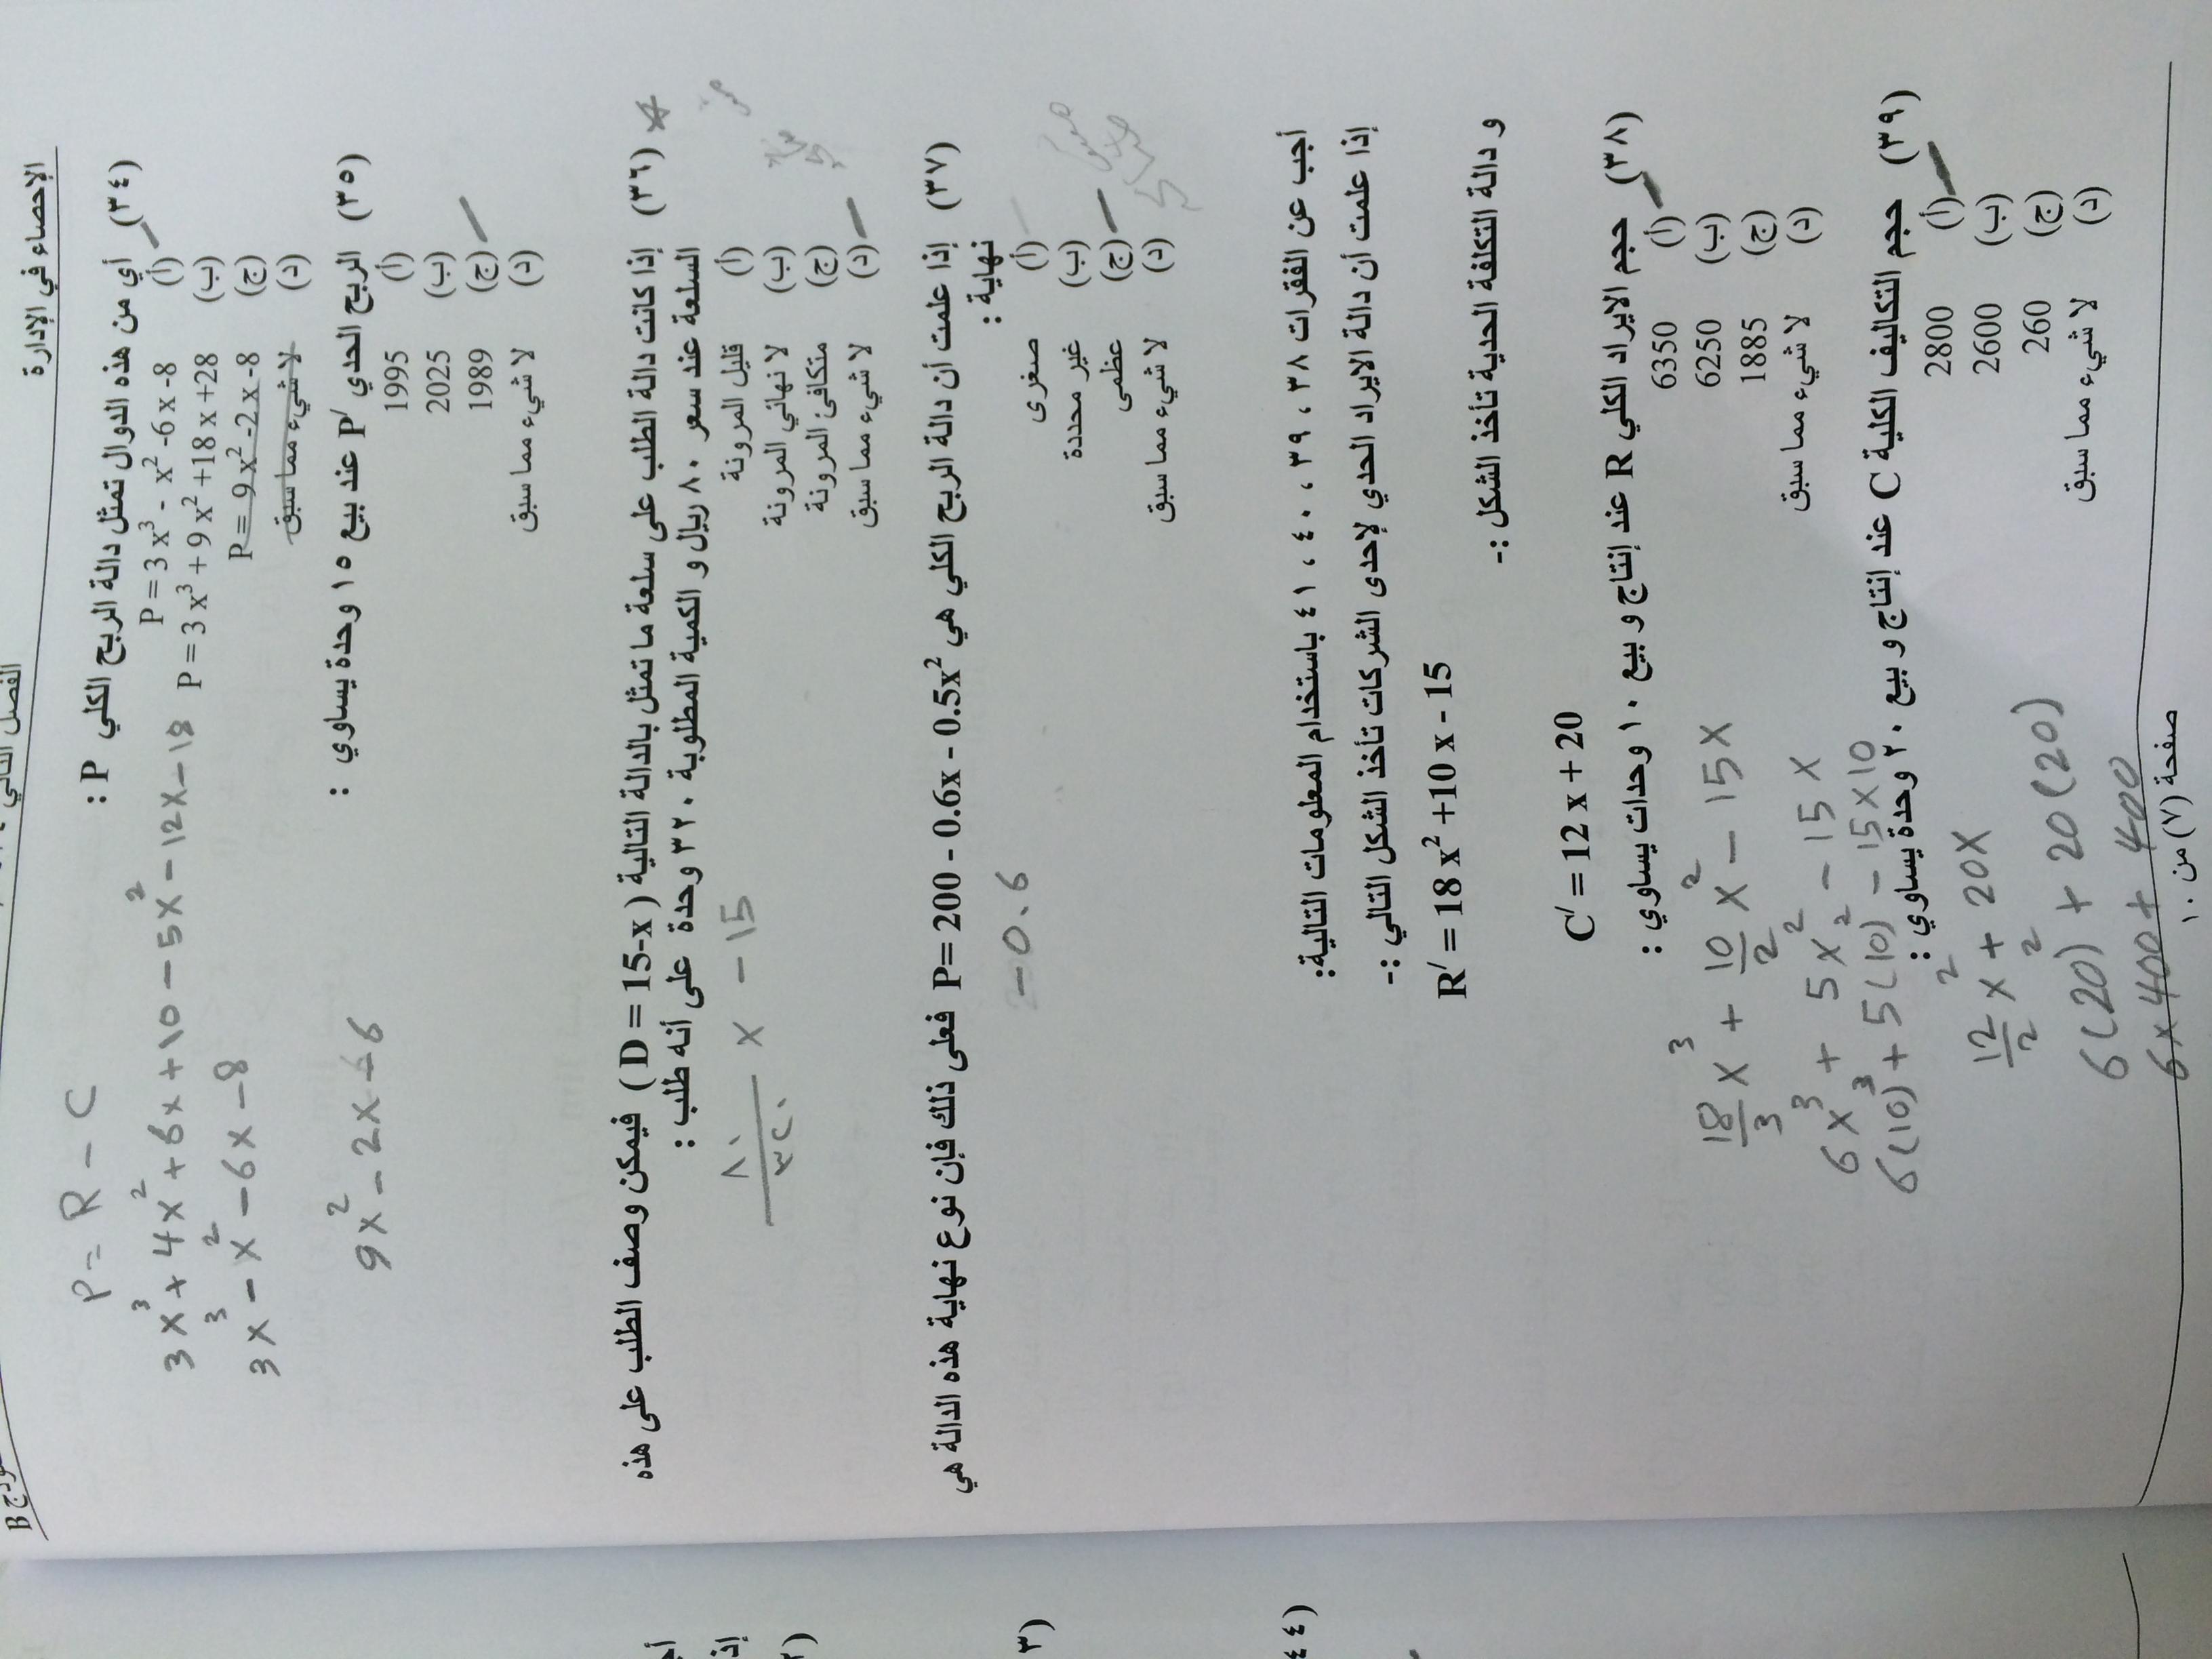 الإحصاء في الإدارة
B
(٣٤) أي من هذه الدوال تمثل دالة الربح الكلي P :
P = R - C
(أ) P = 3 x³ - x² -6 x -8
(ب) P = 3 x³ + 9 x² +18 x +28
(ج) P = 9 x² -2 x -8
(د) لا شيء مما سبق
3x³ + 4x² + 6x + 10 - 5x² - 12x - 18
3x³ - x² - 6x - 8
(٣٥) الربح الحدي P′ عند بيع ١٥ وحدة يساوي :
(أ) 1995
(ب) 2025
(ج) 1989
(د) لا شيء مما سبق
9x² - 2x - 6
(٣٦) إذا كانت دالة الطلب على سلعة ما تمثل بالدالة التالية ( D = 15-x ) فيمكن وصف الطلب على هذه
السلعة عند سعر ٨٠ ريال و الكمية المطلوبة ٣٢٠ وحدة على أنه طلب :
(أ) قليل المرونة
(ب) لا نهائي المرونة
(ج) متكافئ المرونة
(د) لا شيء مما سبق
٨٠
٣٢٠
x - 15
(٣٧) إذا علمت أن دالة الربح الكلي هي P= 200 - 0.6x - 0.5x² فعلى ذلك فإن نوع نهاية هذه الدالة هي
نهاية :
(أ) صغرى
(ب) غير محددة
(ج) عظمى
(د) لا شيء مما سبق
-0.6
أجب عن الفقرات ٣٨ ، ٣٩ ، ٤٠ ، ٤١ باستخدام المعلومات التالية:
إذا علمت أن دالة الايراد الحدي لإحدى الشركات تأخذ الشكل التالي :-
R′ = 18 x² +10 x - 15
و دالة التكلفة الحدية تأخذ الشكل :-
C′ = 12 x + 20
(٣٨) حجم الايراد الكلي R عند إنتاج و بيع ١٠ وحدات يساوي :
(أ) 6350
(ب) 6250
(ج) 1885
(د) لا شيء مما سبق
18/3 x³ + 10/2 x² - 15x
6x³ + 5x² - 15x
6(10)³ + 5(10)² - 15×10
(٣٩) حجم التكاليف الكلية C عند إنتاج و بيع ٢٠ وحدة يساوي :
(أ) 2800
(ب) 2600
(ج) 260
(د) لا شيء مما سبق
12/2 x² + 20x
6(20)² + 20(20)
6×400 + 400
صفحة (٧) من ١٠
(٤٤